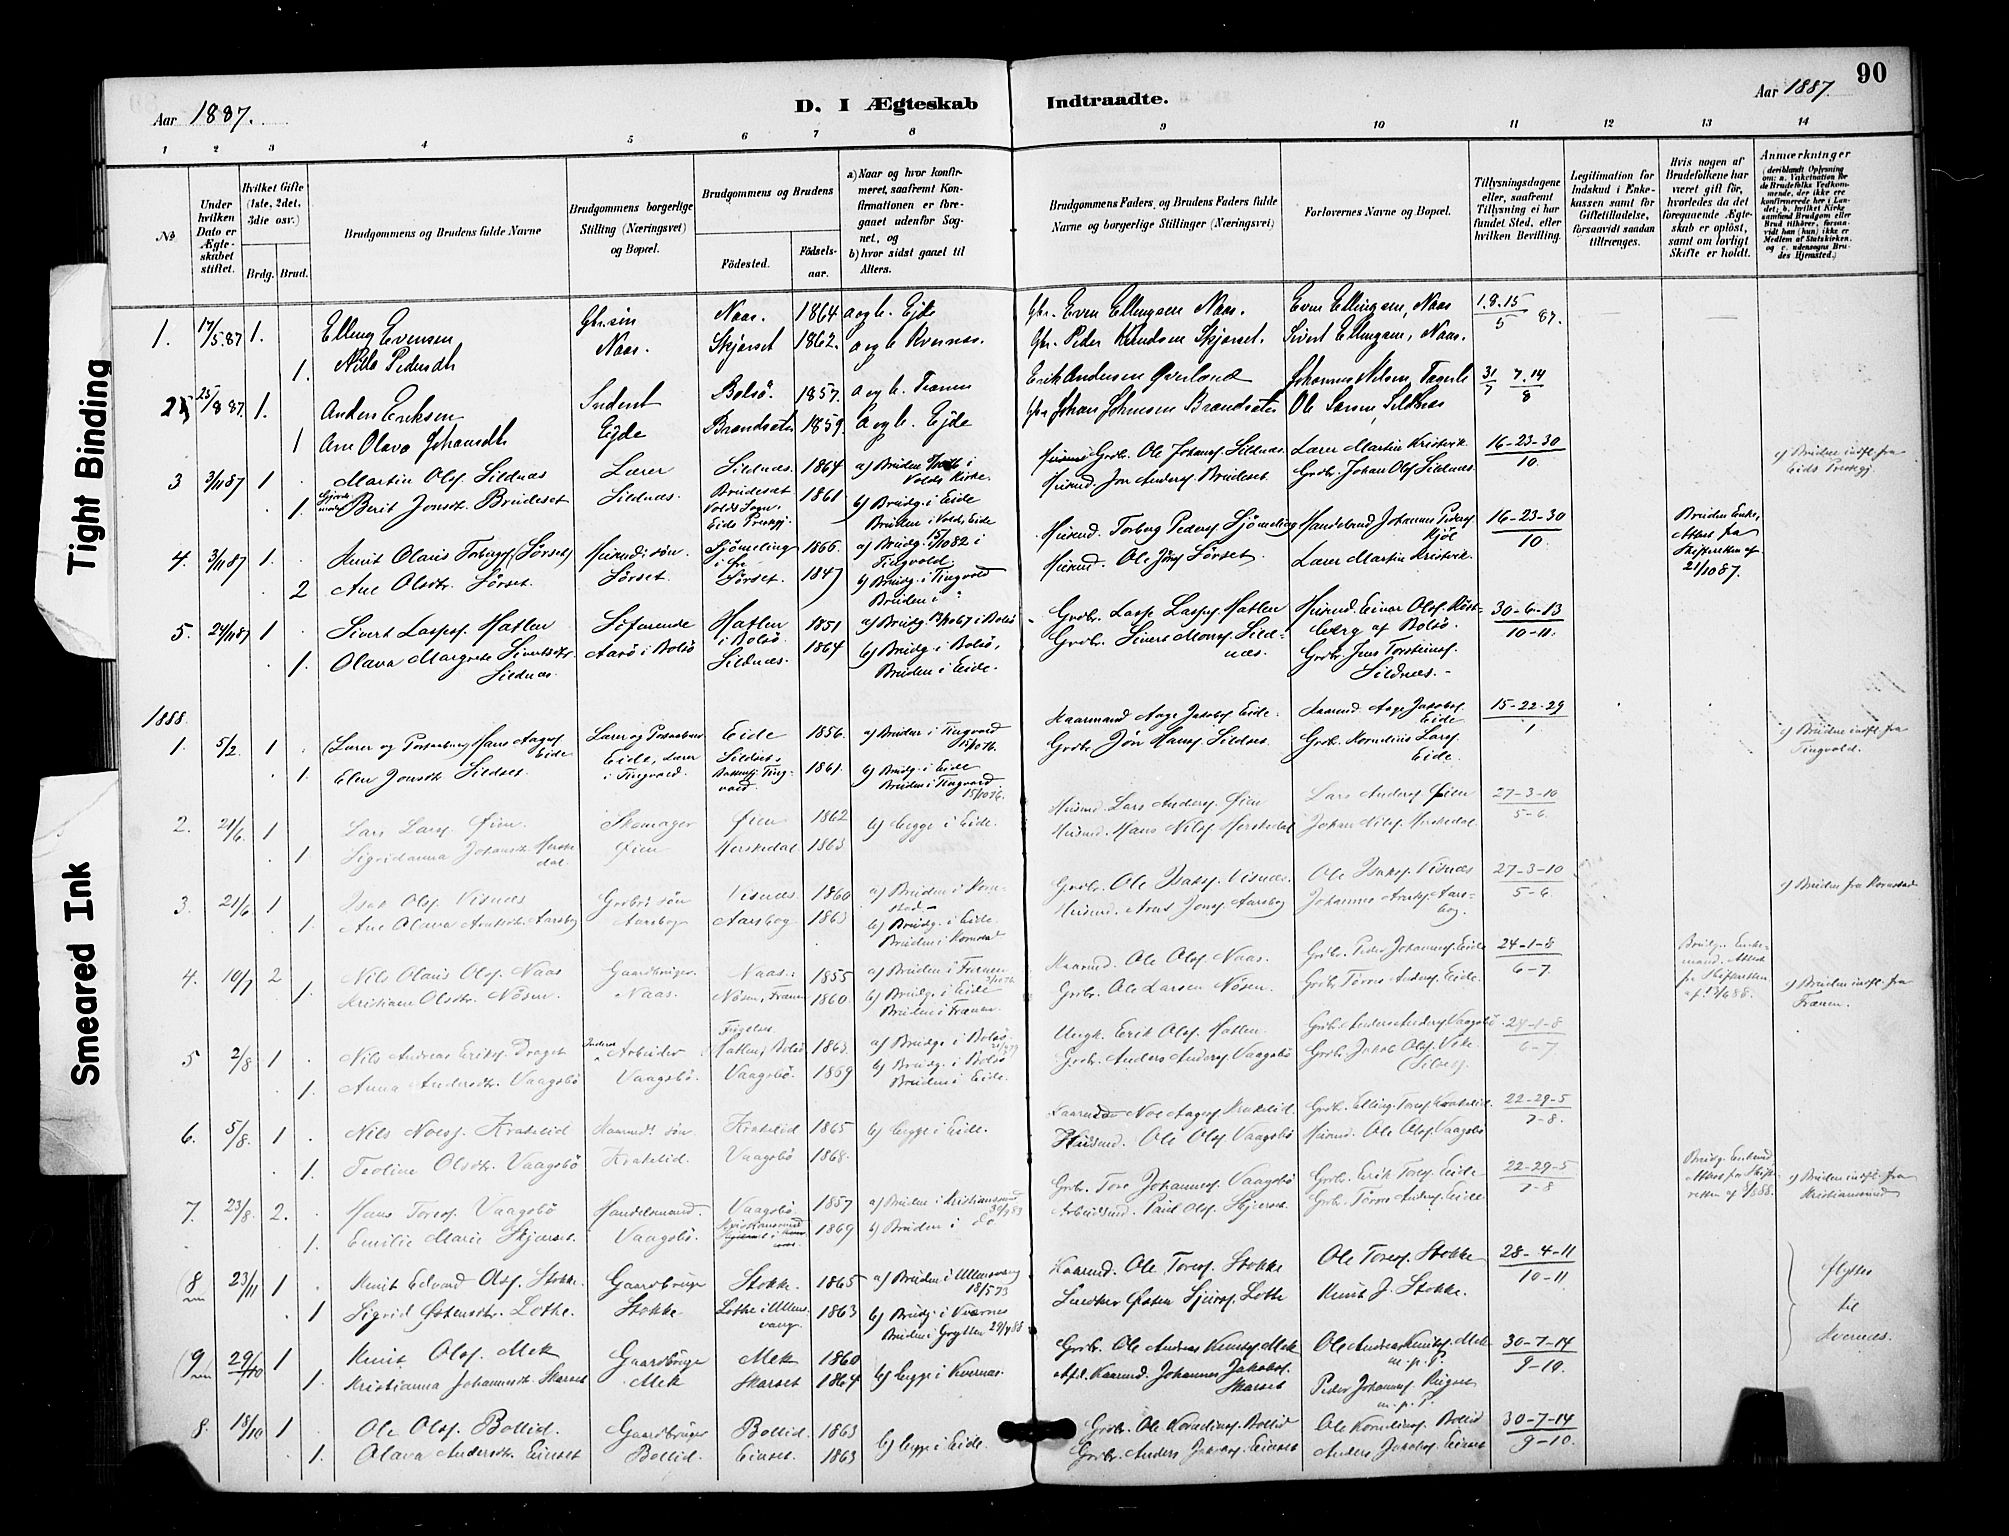 90
Aar 1887.
D. I Ægteskab Indtraadte.
Aar 1887.
1 2 3 4 5 6 7 8 9 10 11 12 13 14
No
Under hvilken Dato er Ægteskabet stiftet.
Hvilket Gifte (1ste, 2det, 3die osv.)
Brdg. Brud.
Brudgommens og Brudens fulde Navne
Brudgommens borgerlige Stilling (Næringsvei) og Bopæl.
Brudgommens og Brudens
Födested.
Födselsaar.
a) Naar og hvor konfirmeret, saafremt Konfirmationen er foregaaet udenfor Sognet, og
b) hvor sidst gaaet til Alters.
Brudgommens Faders, og Brudens Faders fulde Navne og borgerlige Stillinger (Næringsvei)
Forlovernes Navne og Bopæl.
Tillysningsdagene eller, saafremt Tillysning ei har fundet Sted, efter hvilken Bevilling.
Legitimation for Indskud i Enkekassen samt for Giftetilladelse, forsaavidt saadan tiltrænges.
Hvis nogen af Brudefolkene har været gift för, hvorledes da det foregaaende Ægteskab er oplöst, samt om lovligt Skifte er holdt.
Anmærkninger
(deriblandt Oplysning om: a. Vakcination for de Brudefolks Vedkommende, der ikke ere konfirmerede her i Landet, b, hvilket Kirkesamfund Brudgom eller Brud tilhörer, forsaavidt han (hun) ikke er Medlem af Statskirken, og c. udensogns Brudes Hjemsted.)
Tight Binding
Smeared Ink
1. 17/5.87 1. Elling Evensen Gbr. sön Naas. 1864 a og b. Ejde Gbr. Even Ellingsen Naas. Even Ellingsen, Naas 1.8.15/5 87.
1. Pedersdt. Naas. Skjørset 1862. a og b Kvernæs. Gbr. Peder Knudsen Skjørset. Sivert Ellingsen, Naas.
2 25/8 87. 1. Anders Eriksen Inderst Bolsö. 1857. a og b. Erik Andersen Øverland Johannes Nilsen, 31/7 7.14/8
1 Ane Olava Johansdt. Ejde Brandsæter 1859. a og b. Ejde Gbr Johan Johnsen Brandsæter Ole Larsen Sildnæs
3 3/11 87 1 Martin Olsf. Sildnæs Lærer Sildnæs. 1864 a) Bruden i Volds Kirke. Grdbr. Ole Johansf. Sildnæs. Lærer Martin Kristvik 16-23-30/10. c) Bruden indfl. fra Eids Prestegj.
1. Berit Jonsdt. Brudeset Sildnæs. Brudeset Volds Sogn, Eids Prestgj. 1861 b) Brudg. i Eide Bruden i Vold, Eide Husmd. Jon Andersf Brudeset. Grdbr. Johan Olsf Sildnæs
4. 3/11 87 1. Knut Olaus Torbergs. (Sørset) Husmd. sön. Sjömeling 1866. a) Brudg. 15/10 82 i Tingvold Husmd. Torberg Peders. Sjömeling Handelsmd Johannes Peders. 16-23-30/10. Bruden Enke, Attest fra Skifteretten af 21/10 87.
2 Ane Olsdtr. Sørset. Sørset. Sørset. 1847 b) Brudg. i Tingvold Bruden i " Husmd. Ole Jonsf Sørset. Lærer Martin Kristvik.
5. 24/11 87 1 Sivert Laspsf. Hatlen Söfarende Hatlen i Bolsö. 1851 a) Brudg. i Bolsö Grdbr. Lasp. Laspsf. Hatlen Husmd. Einar Olsf. af Bolsö. 30-6-13/10-11.
1. Olava Margrete Sivertsdtr. Sildnæs. Aarö i Bolsö Sildnæs. 1864 b) Brudg. i Bolsö, Bruden i Eide. Grdbr. Sivert Monsf Sildnæs. Grdbr. Jens Torsteinsf. Sildnæs.
1888.
1. 5/2 1 (Lærer og Postaabner) Hans Aagesf Eide Lærer og Postaabner Eide, Lærer i Tingvold. Eide 1856. a) Bruden i Tingvold 15/10 76. Kaarmand Aage Jakobsf. Eide. Kaarmd. Aage Jakobsf. Eide 15-22-29/1 c) Bruden indfl. fra Tingvold.
1. Elen Jonsdt. Sildset. Sildset, Tingvold. 1861. b) Brudg. i Eide Bruden i Tingvold 15/10 76. Grdbr Jon Hansf. Sildset. Grdbr. Kornelius Larsf. Eide.
2. 21/6. 1 Lars Larsf. Øien. Skomager Øien 1862 b) begge i Eide. Husmd. Lars Andersf. Øien Lars Andersf. Øien 27-3-10/5-6.
1 Sigridanna Johansdt. Herskedal Øien Herskedal 1863 Husmd. Hans Nilsf Herskedal Johan Nilsf. Herskedal
3. 21/6 1 Isak Olsf. Visnæs Grdbrs sön Visnæs 1860 a) Bruden i Kornstad Grdbr. Ole Isaksf. Visnæs. Ole Isaksf. Visnæs 27-3-10/5-6. c) Bruden fra Kornstad
1. Ane Olava Arntsdt. Aarsbog Aarsbog Aarsbog 1863 b) Brudg. i Eide. Bruden i Kornstad Husmd. Arnt Jonsf Aarsbog Johannes Arntsf. Aarsbog.
4. 10/7 2 Nils Olaus Olsf. Naas Gaardbruger. Naas. 1855 a) Bruden i Frænen Kaarmd. Ole Olsf Naas. Grdbr. Peder Johannesf. Eide 24-1-8/6-7. Brudg. Enkemand. Attest fra Skifteretten c) Bruden indfl. fra Frænen.
1. Kristiane Olsdtr. Nösen. Naas. Nösen, Frænen 1860 b) Brudg. i Eide Bruden i Frænen. Grdbr. Ole Larsen Nösen. Grdbr Törres Andersf. Eide.
5 2/8 1 Nils Andreas Eriksf. Draget Arbeider Hatlen, Bolsö 1863. a) Brudg. i Bolsö. Ungk. Erik Olsf. Hatlen. Grdbr. Anders Andersf Vaagsbö. 24-1-8/6-7.
1. Anna Andersdt. Vaagsbö Vaagsbö. Vaagsbö. 1869 b) Brudg. i Bolsö Bruden i Eide. Grdbr. Anders Andersf. Vaagsbö Grdbr. Jakob Olsf.
6. 5/8. 1 Nils Noesf. Krakelid Kaarmds sön Krakelid 1865 b) begge i Eide. Kaarmd Noe Aagesf Krakelid. Grdbr. Elling Toresf Krakelid. 22-29-5/7-8.
1. Teoline Olsdt. Vaagsbö Krakelid. Vaagsbö 1868. Husmd. Ole Olsf. Vaagsbö Husmd. Ole Olsf. Vaagsbö
7. 23/8. 2. Hans Toresf. Vaagsbö Handelsmand. Vaagsbö 1857 a) Bruden i Kristiansund Grdbr. Tore Johannesf. Vaagsbö Grdbr. Erik Toresf. Eide 22-29-5/7-8 Brudg. Enkemd. Attest fra Skifteretten c) Bruden indfl. fra Kristiansund
1. Emilie Marie Skjørset. Vaagsbö. Kristiansund 1869 b) Bruden i do Arbeidsmd. Paul Olsf. Skjørset. Grdbr. Törres Andersf Eide
(8 23/11 1 Knut Edvard Olsf. Stokke. Gaardbruger Stokke. 1865 a) Bruden i Ullensvang 18/5 73 Kaarmd. Ole Toresf. Stokke Ole Toresf. Stokke 28-4-11/10-11 flyttes til Kvernæs.
1 Sigrid Østensdtr. Lothe. Stokke Lothe i Ullensvang 1863 b) Brudg. i Kvernæs Bruden i Grytten Østen Sjursf. Lothe Knut J. Stokke.
(9 29/10 1 Knut Olsf. Mek Gaardbruger Mek 1860 b) begge i Kvernæs. Grdbr. Ole Andreas Knutsf. Mek Ole Andreas Knutsf. Mek m.p.P. 30-7-14/9-10.
1. Kristianna Johannesdt. Skarset Mek Skarset 1864 Kaarmd. Johannes Jakobsf. Skarset Peder Johannesf. m.p.P.
8. 18/10 1 Ole Olsf. Bollid. Gaardbruger Bollid. 1863 b) begge i Eide. Grdbr. Ole Korneliusf. Bollid Ole Korneliusf. Bollid 30-7-14/9-10.
1. Olava Andersdt. Eirset Bollid. Eirset. 1863 Grdbr. Anders Jakobsf. Eirset Anders Jakobsf. Eirset